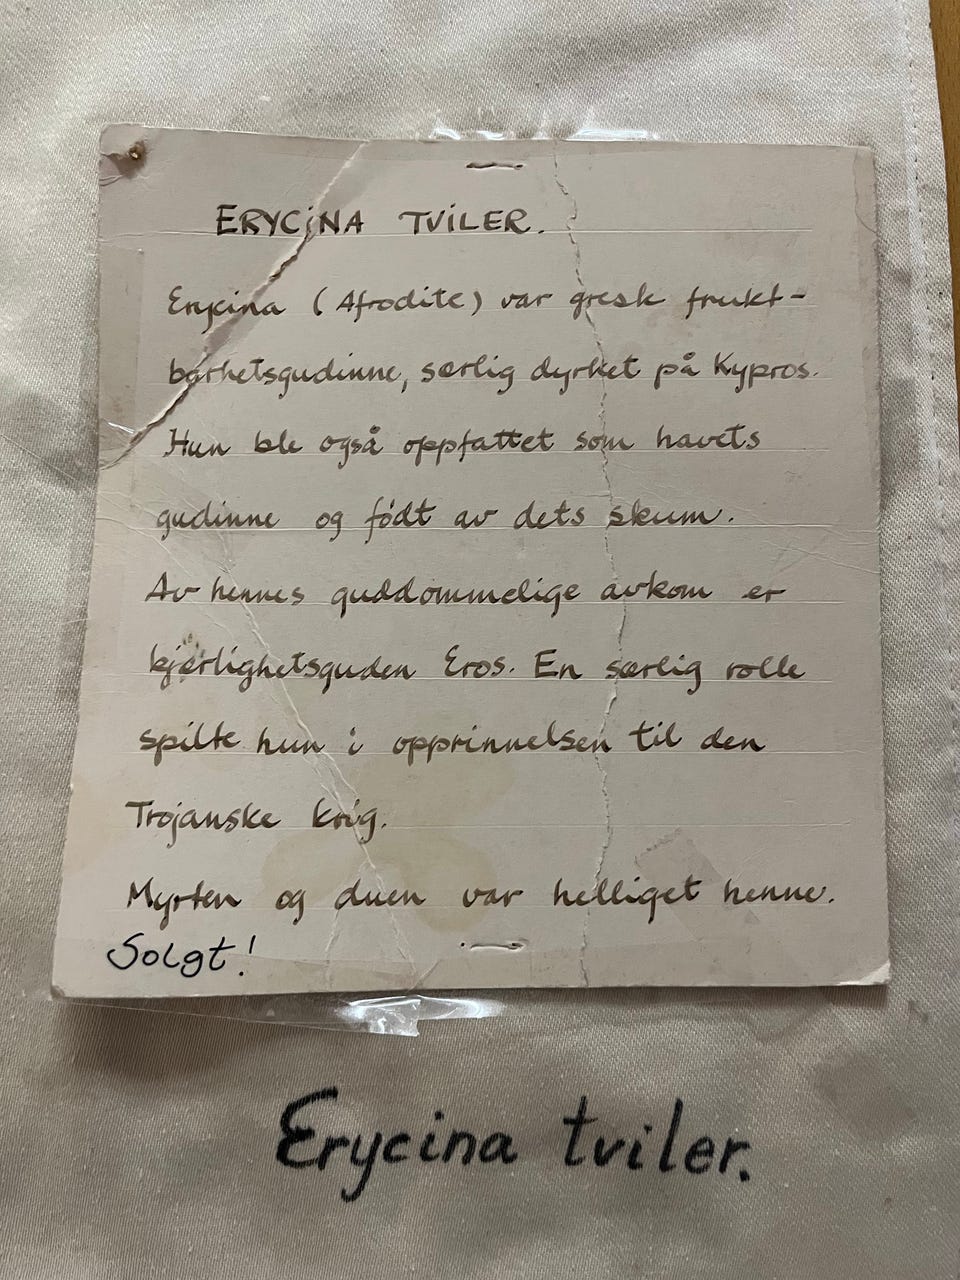 ERYCINA TVILER.
Erycina (Afrodite) var gresk frukt-
barhetsgudinne, særlig dyrket på Kypros.
Hun ble også oppfattet som havets
gudinne og født av dets skum.
Av hennes guddommelige avkom er
kjærlighetsguden Eros. En særlig rolle
spilte hun i opprinnelsen til den
Trojanske krig.
Myrten og duen var helliget henne.
Solgt!
Erycina tviler.